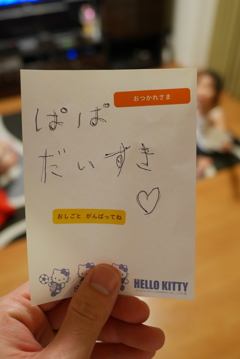 おつかれさま
ぱぱ
だいすき
♡
おしごと がんばってね
HELLO KITTY